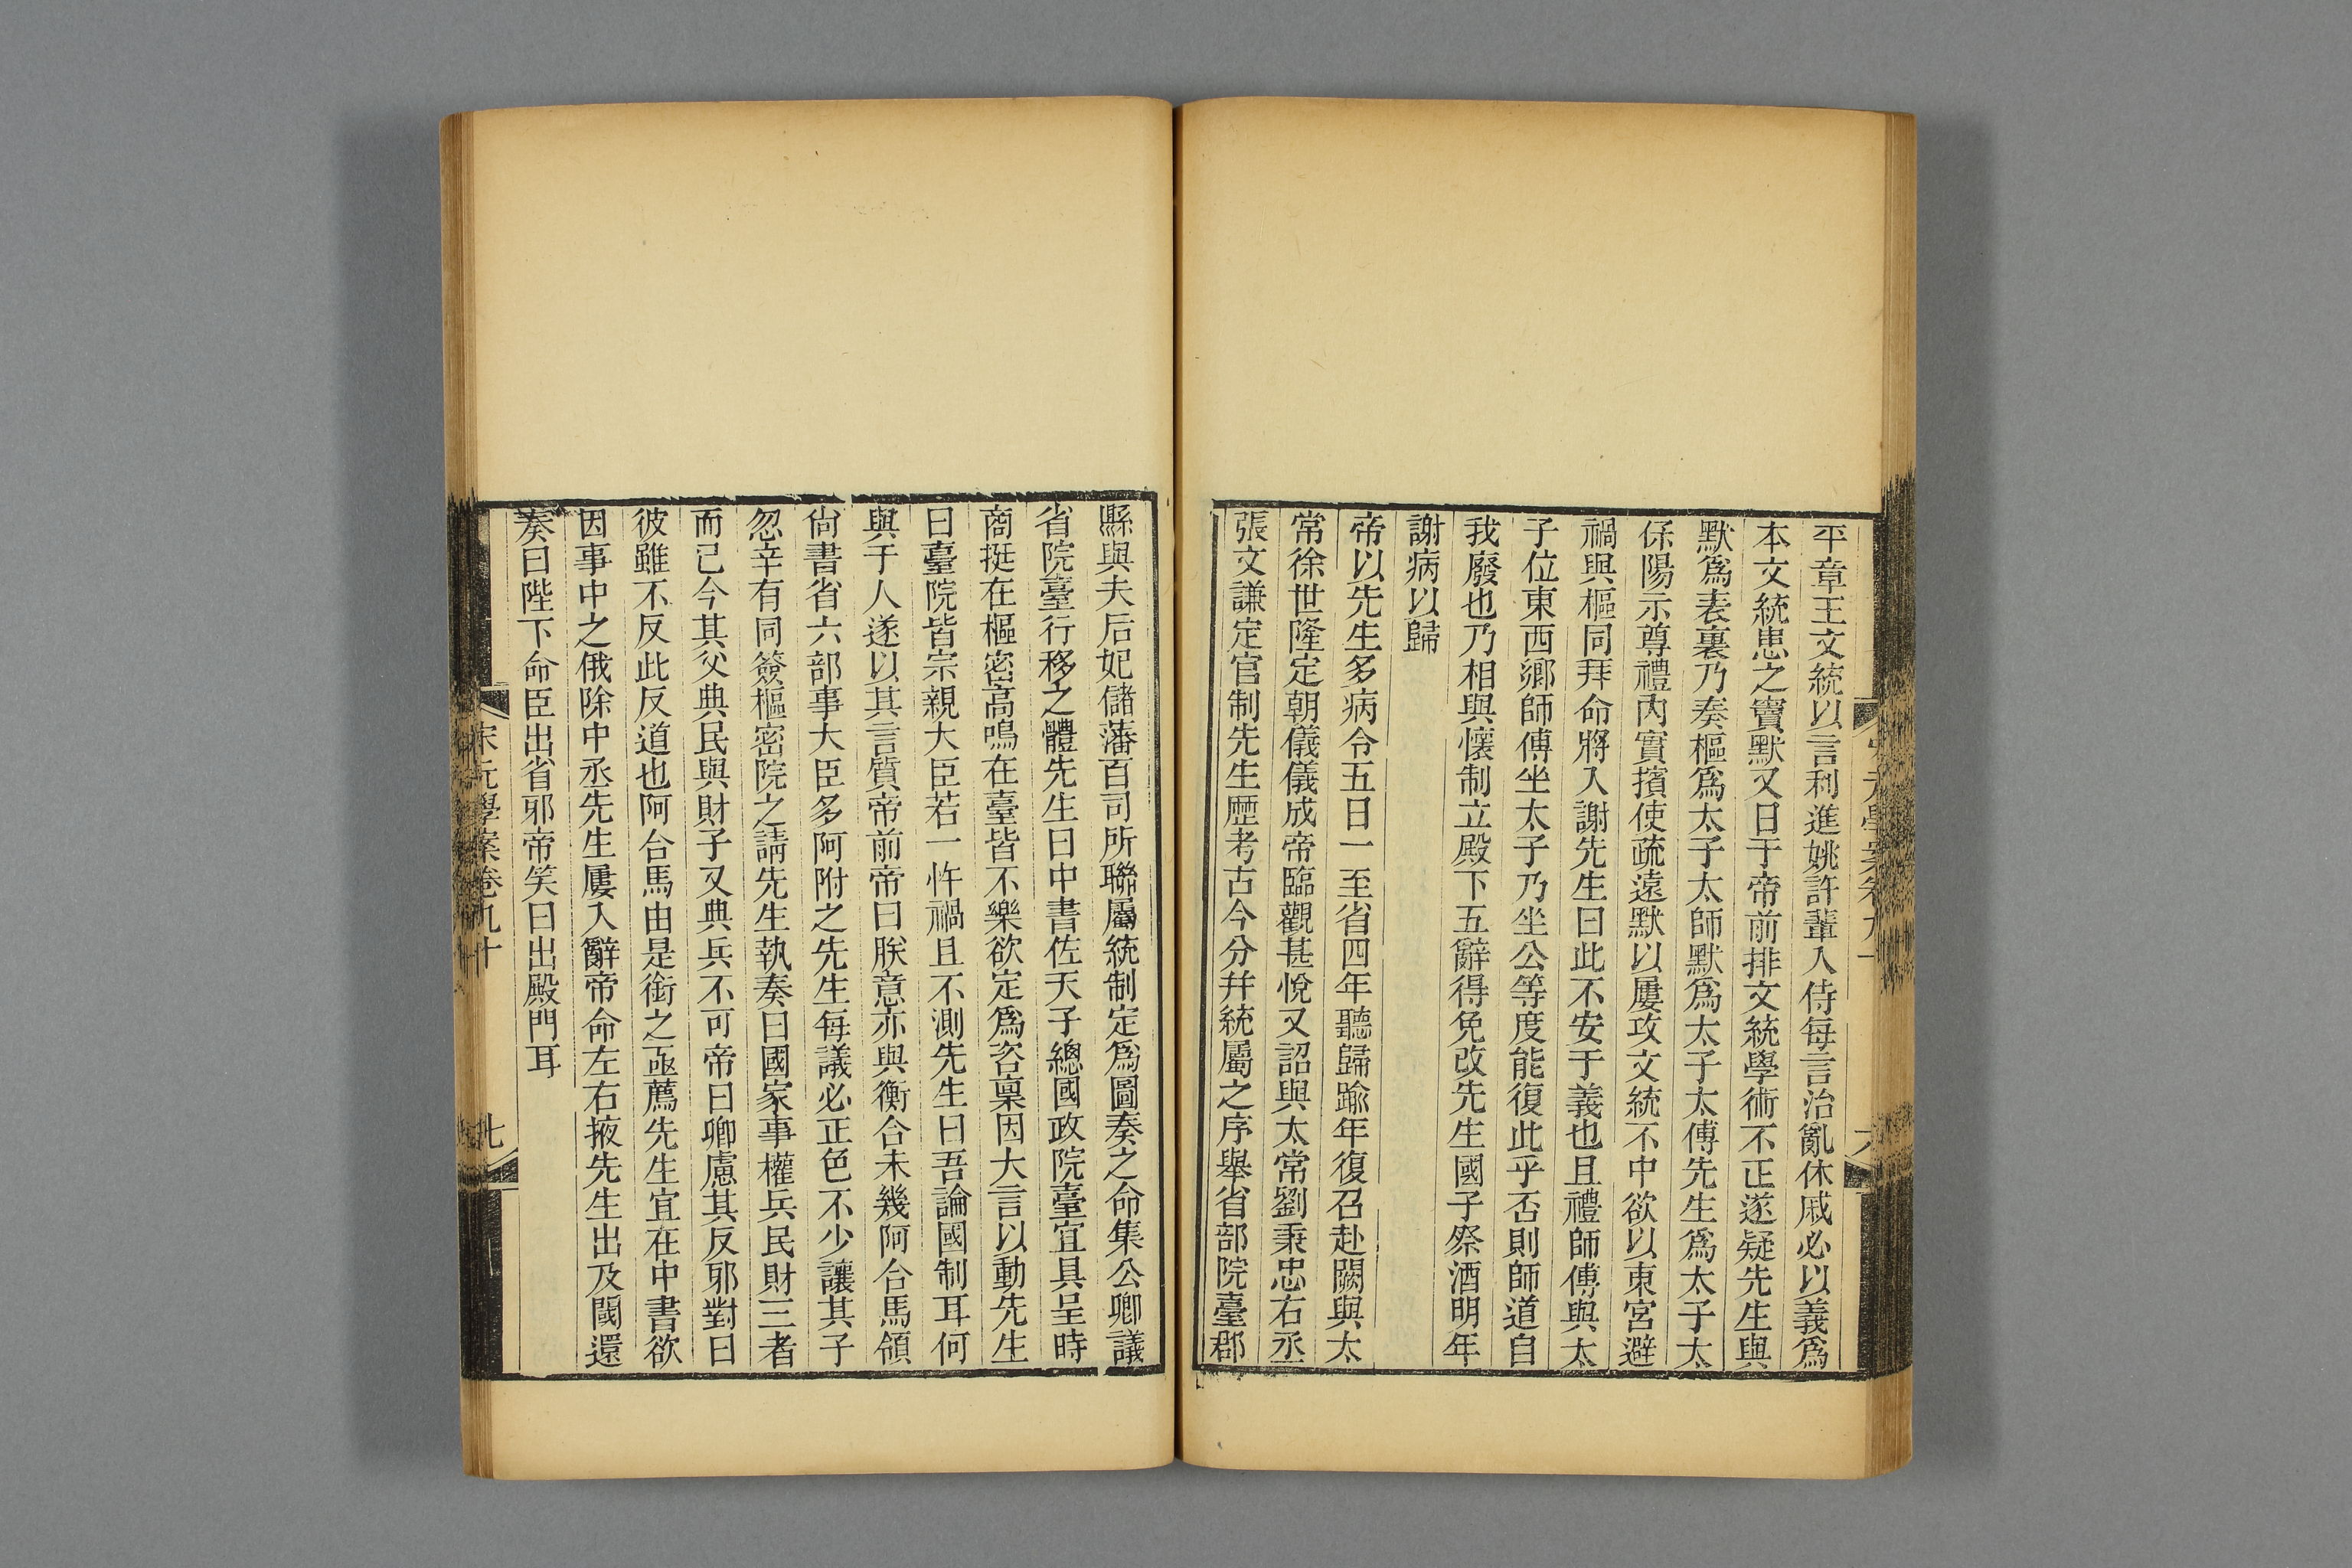 平章王文統以言利進姚許輩入侍每言治亂休戚必以義爲
本文統患之竇默又日于帝前排文統學術不正遂疑先生與
默爲表裏乃奏樞爲太子太師默爲太子太傅先生爲太子太
保陽示尊禮內實擯使疏遠默以屢攻文統不中欲以東宮避
禍與樞同拜命將入謝先生曰此不安于義也且禮師傅與太
子位東西鄉師傅坐太子乃坐公等度能復此乎否則師道自
我廢也乃相與懷制立殿下五辭得免改先生國子祭酒明年
謝病以歸
帝以先生多病令五日一至省四年聽歸踰年復召赴闕與太
常徐世隆定朝儀儀成帝臨觀甚悅又詔與太常劉秉忠右丞
張文謙定官制先生歷考古今分幷統屬之序舉省部院臺郡
縣與夫后妃儲藩百司所聯屬統制定爲圖奏之命集公卿議
省院臺行移之體先生曰中書佐天子總國政院臺宜具呈時
商挺在樞密高鳴在臺皆不樂欲定爲咨稟因大言以動先生
曰臺院皆宗親大臣若一忤禍且不測先生曰吾論國制耳何
與于人遂以其言質帝前帝曰朕意亦與衡合未幾阿合馬領
尙書省六部事大臣多阿附之先生每議必正色不少讓其子
忽辛有同簽樞密院之請先生執奏曰國家事權兵民財三者
而已今其父典民與財子又典兵不可帝曰卿慮其反邪對曰
彼雖不反此反道也阿合馬由是銜之亟薦先生宜在中書欲
因事中之俄除中丞先生屢入辭帝命左右掖先生出及閾還
奏曰陛下命臣出省邪帝笑曰出殿門耳
宋元學案卷九十
七